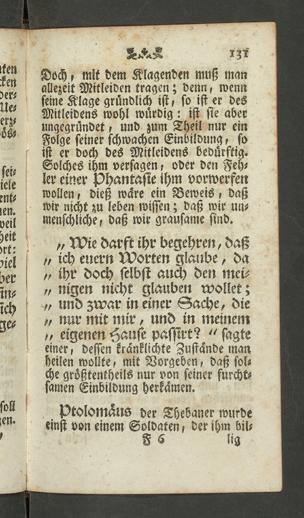 131
Doch, mit dem Klagenden muß man
allezeit Mitleiden tragen; denn, wenn
seine Klage gründlich ist, so ist er des
Mitleidens wohl würdig: ist sie aber
ungegründet, und zum Theil nur ein
Folge seiner schwachen Einbildung, so
ist er doch des Mitleidens bedürftig.
Solches ihm versagen, oder den Feh-
ler einer Phantasie ihm vorwerfen
wollen, dieß wäre ein Beweis, daß
wir nicht zu leben wissen; daß wir un-
menschliche, daß wir grausame sind.
„ Wie darft ihr begehren, daß
„ ich euern Worten glaube, da
„ ihr doch selbst auch den mei-
„ nigen nicht glauben wollet;
„ und zwar in einer Sache, die
„ nur mit mir, und in meinem
„ eigenen Hause passirt? “ sagte
einer, dessen kränklichte Zustände man
heilen wollte, mit Vorgeben, daß sol-
che größtentheils nur von seiner furcht-
samen Einbildung herkämen.
Ptolomäus der Thebaner wurde
einst von einem Soldaten, der ihm bil-
F 6 lig